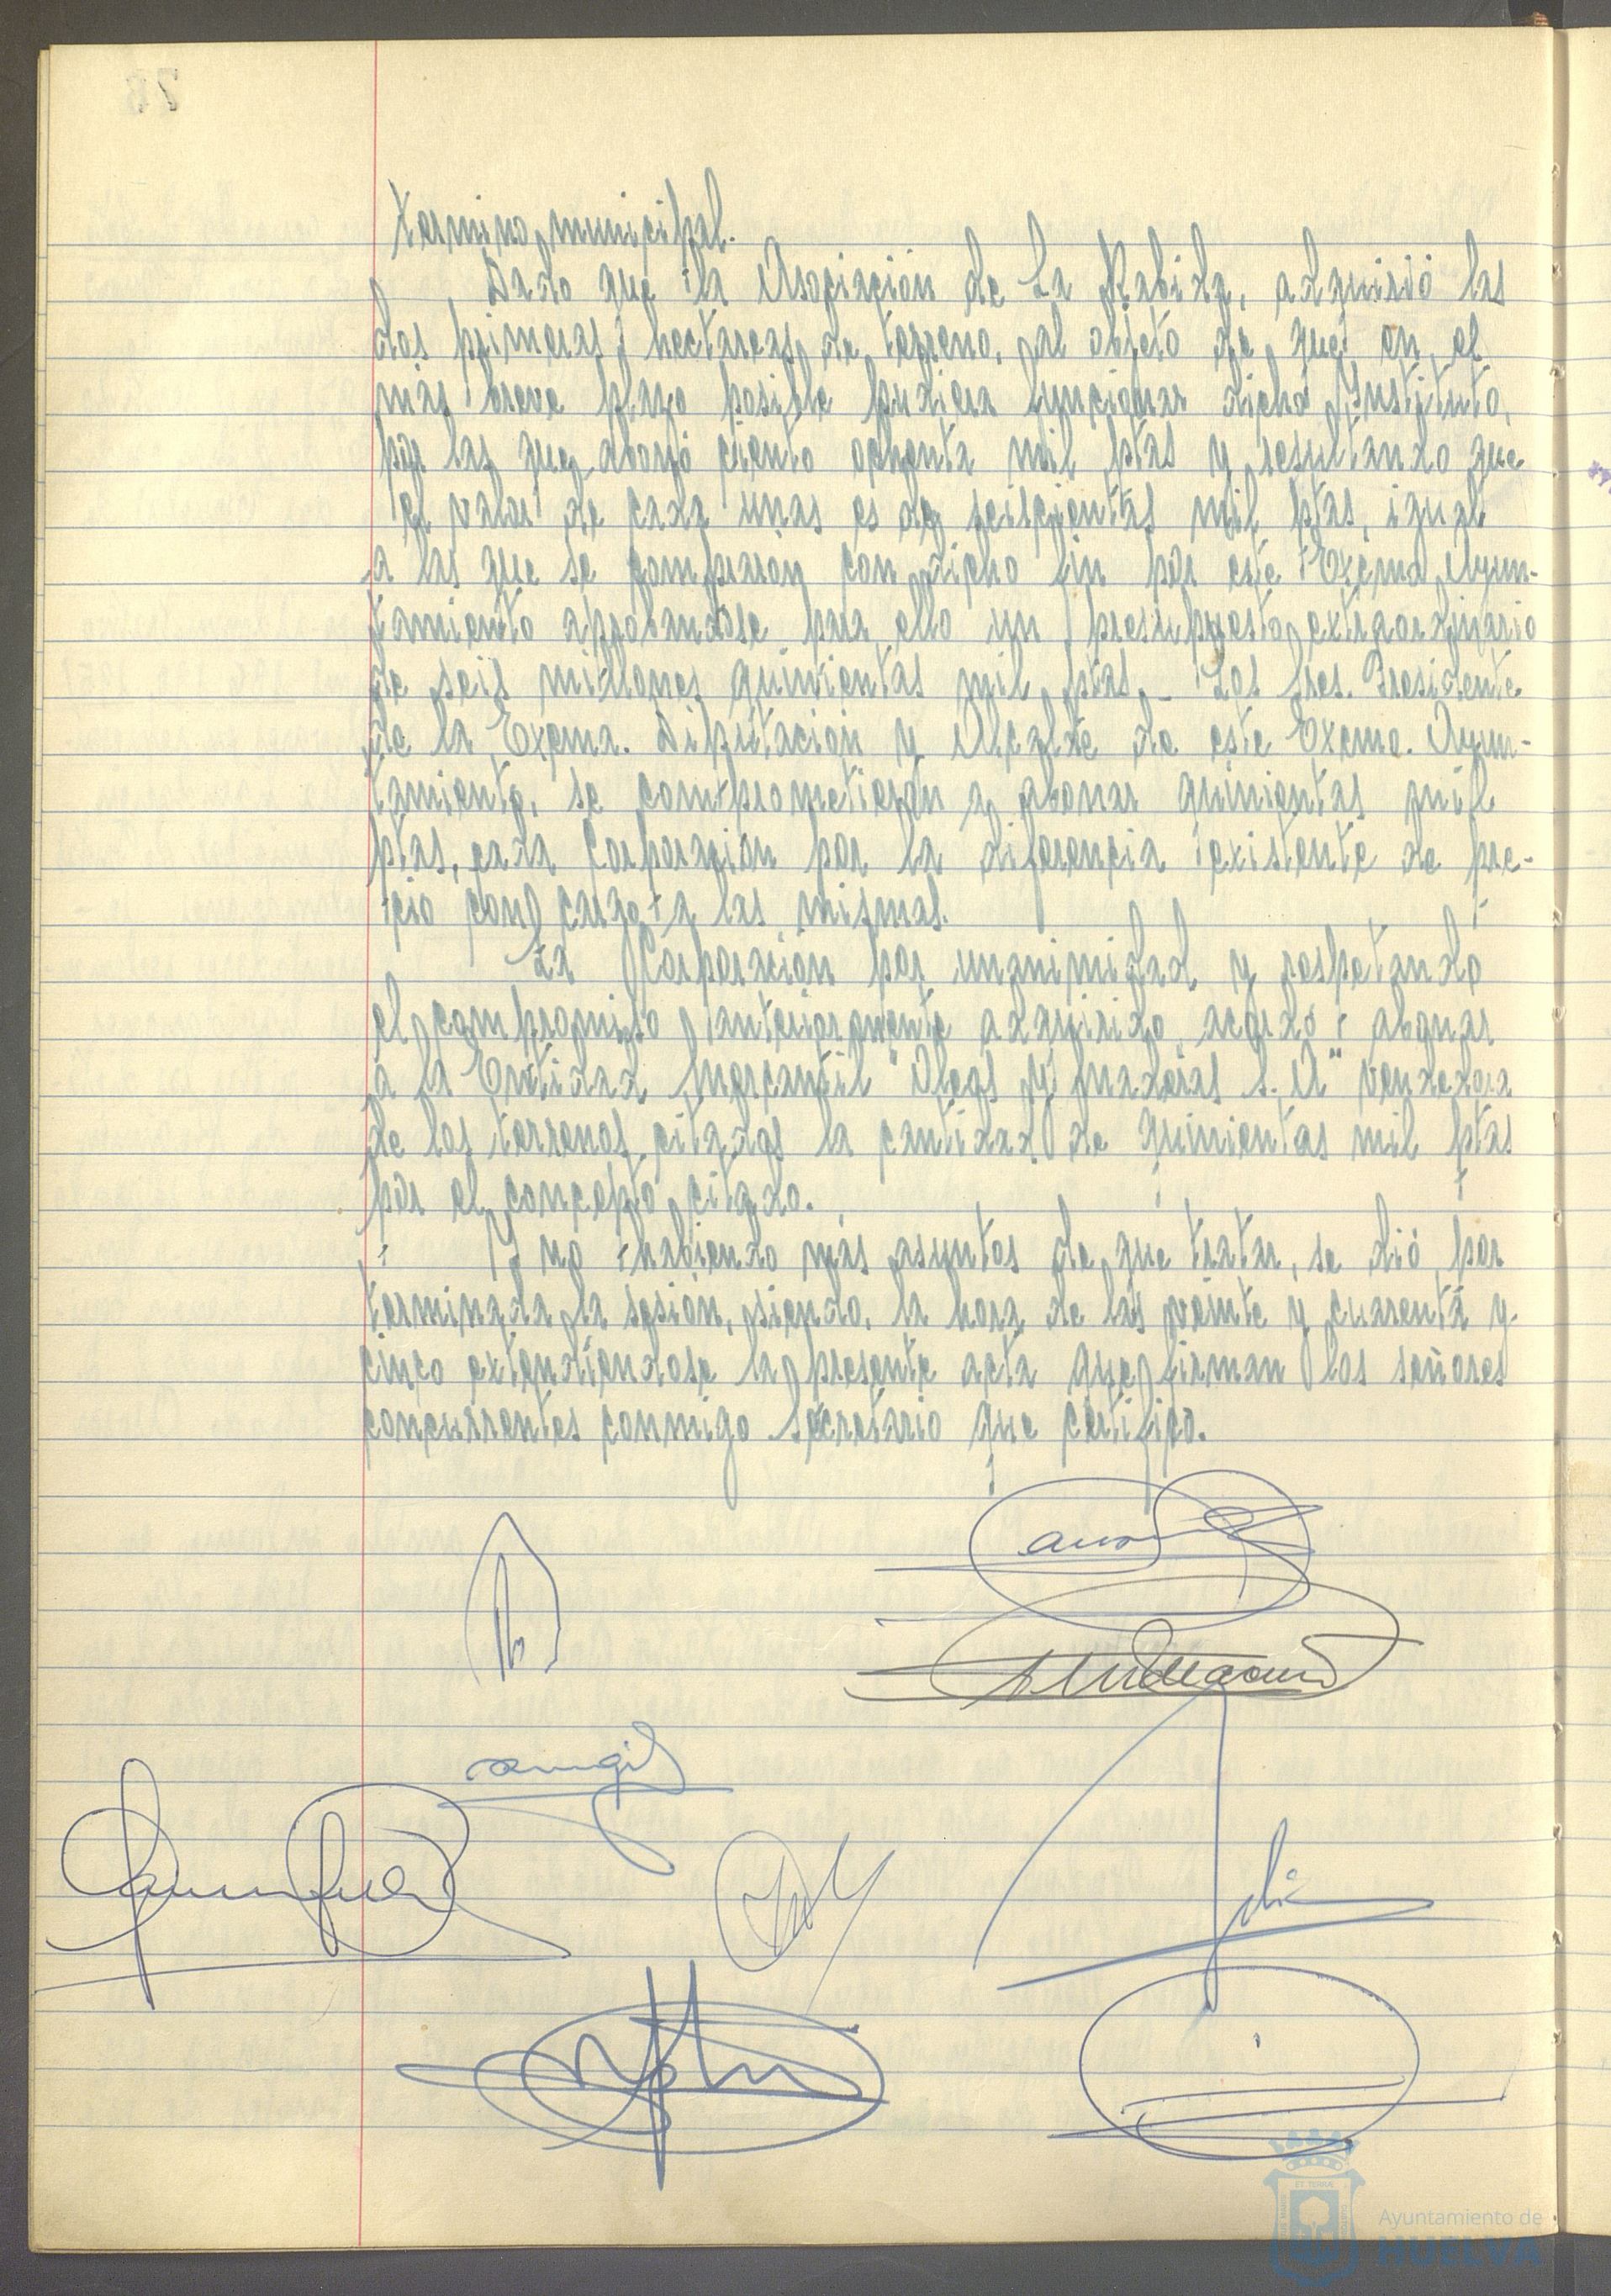 termino municipal.
Dado que la Asociación de La Rabida, adquirió las
dos primeras hectareas de terreno, al objeto de que en el
más breve plazo posible pudiera funcionar dicho Instituto,
por las que abonó ciento ochenta mil ptas y resultando que
el valor de cada unas es de seiscientas mil ptas, igual
a las que se compraron con dicho fin por este Excmo Ayun-
tamiento aprobandose para ello un presupuesto extraordinario
de seis millones quinientas mil ptas.- Los Sres. Presidente
de la Excma. Diputación y Alcalde de este Excmo. Ayun-
tamiento, se comprometieron a abonar quinientas mil
ptas, cada Corporación por la diferencia existente de pre-
cio con cargo a las mismas.
La Corporación por unanimidad y respetando
el compromiso anteriormente adquirido, acordó abonar
a la Entidad Mercantil "Aleas y maderas S. A" vendedora
de los terrenos citados la cantidad de quinientas mil ptas
por el concepto citado.
Y no habiendo más asuntos de que tratar, se dió por
terminada la sesión, siendo, la hora de las veinte y cuarenta y
cinco extendiendose la presente acta que firman los señores
concurrentes conmigo Secretario que certifico.
Ayuntamiento de
HUELVA